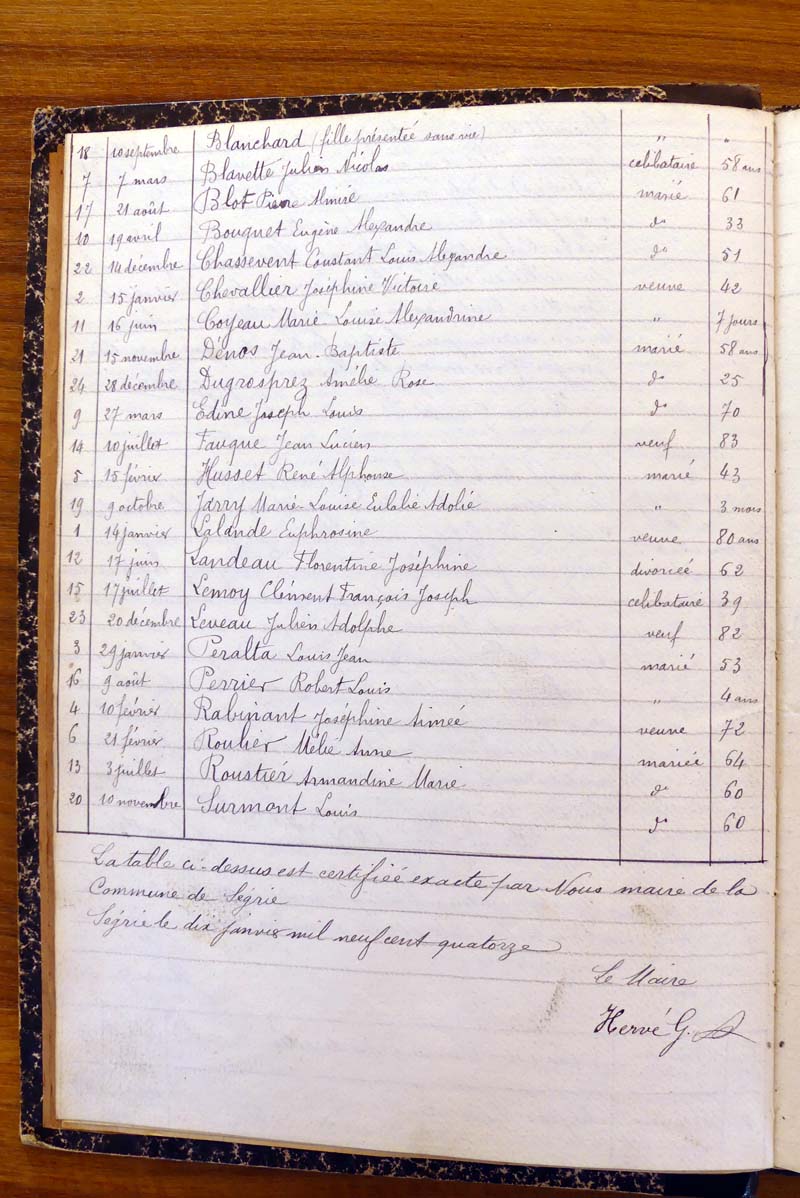 18 10 septembre Blanchard (fille présentée sans vie) " "
7 7 mars Blavette Julien Nicolas célibataire 58 ans
17 21 août Blot Pierre Almiré marié 61
10 19 avril Bouquet Eugène Alexandre do 33
22 14 décembre Chassevent Constant Louis Alexandre do 51
2 15 janvier Chevallier Joséphine Victoire veuve 42
11 16 juin Coyeau Marie-Louise Alexandrine " 7 jours
21 15 novembre Dénos Jean-Baptiste marié 58 ans
24 28 décembre Dugrosprez Amélie Rose do 25
9 27 mars Edine Joseph Louis do 70
14 10 juillet Fauque Jean Lucien veuf 83
5 15 février Husset René Alphonse marié 43
19 9 octobre Jarry Marie-Louise Eulalie Adolié " 3 mois
1 14 janvier Lalande Euphrosine veuve 80 ans
12 17 juin Landeau Florentine Joséphine divorcée 62
15 17 juillet Lemoy Clément François Joseph célibataire 39
23 20 décembre Leveau Julien Adolphe veuf 82
3 29 janvier Peralta Louis Jean marié 53
16 9 août Perrier Robert Louis " 4 ans
4 10 février Rabinant Joséphine Aimée veuve 72
6 21 février Roulier Mélie Anne mariée 64
13 3 juillet Roustier Armandine Marie do 60
20 10 novembre Surmont Louis do 60
La table ci-dessus est certifiée exacte par Nous maire de la
Commune de Ségrie
Ségrie le dix janvier mil neuf cent quatorze
Le Maire
Hervé G.